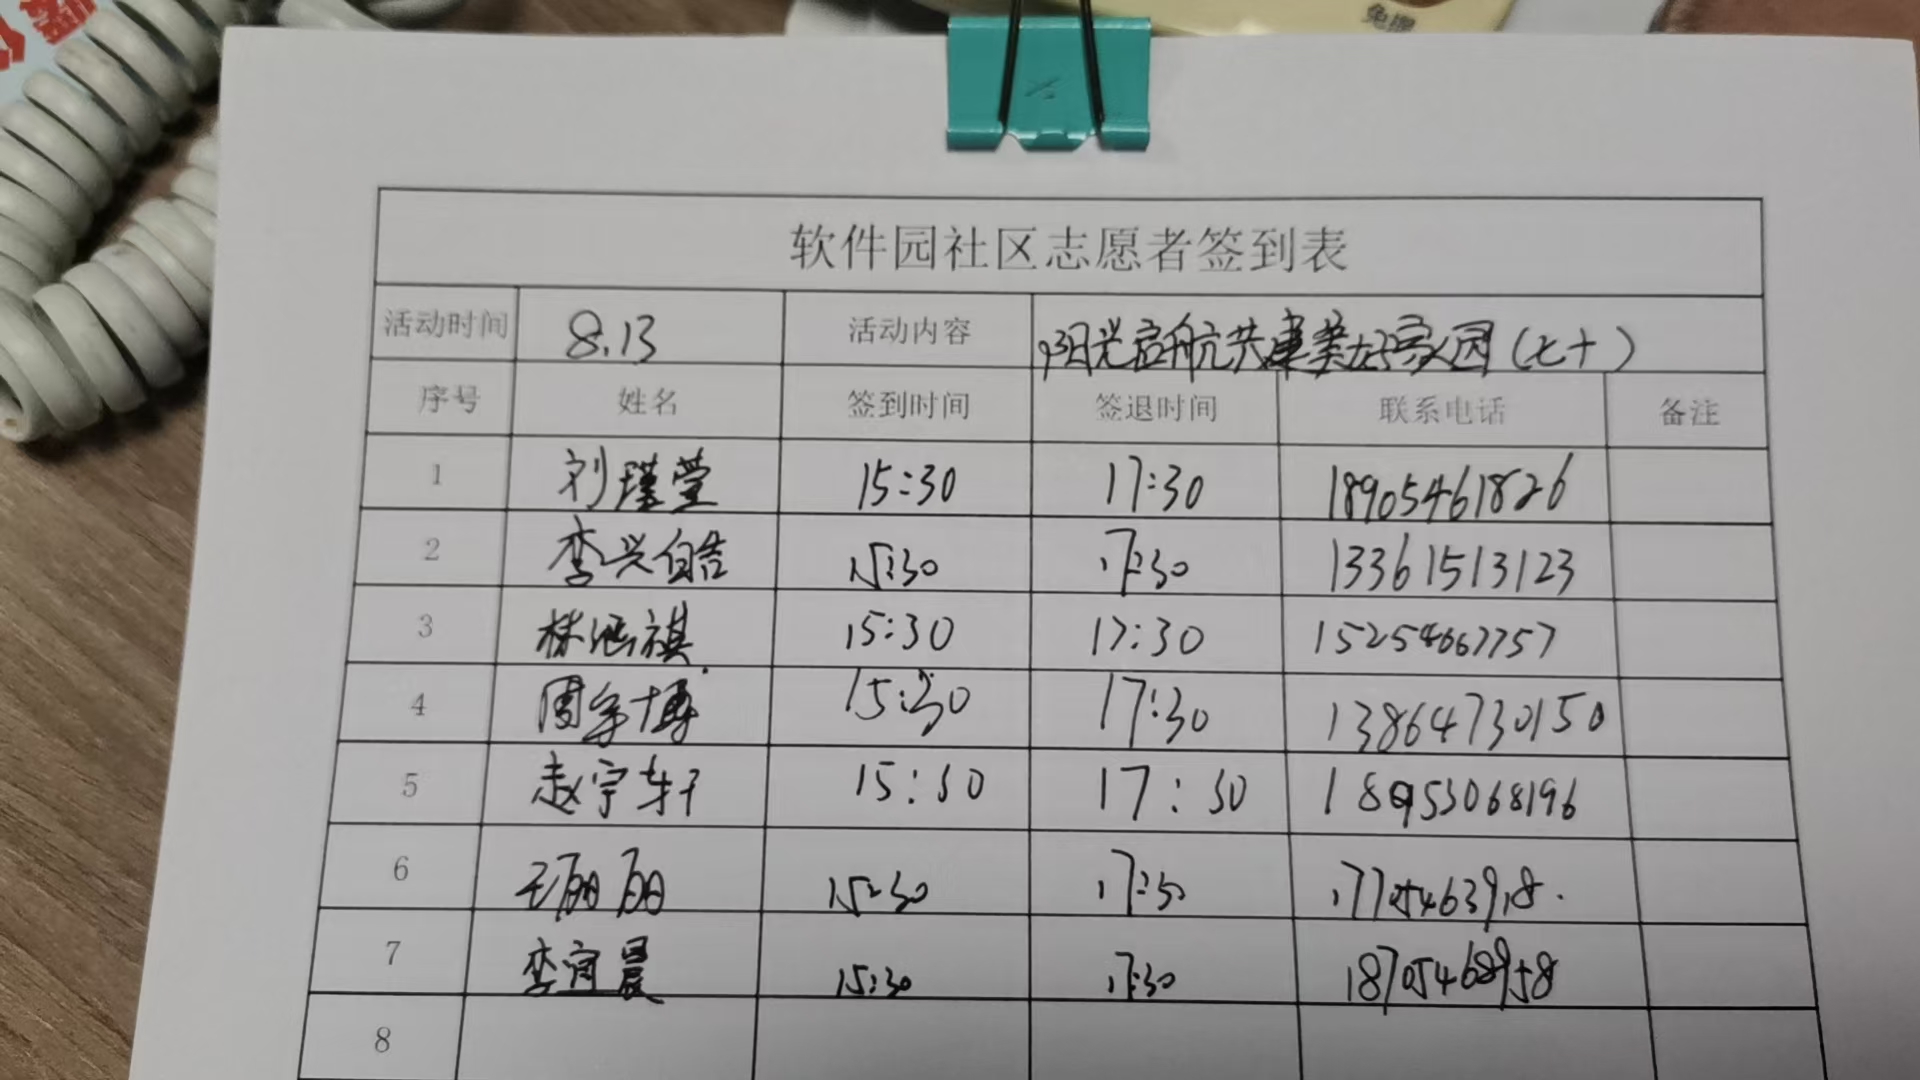 免
软件园社区志愿者签到表
活动时间 8.13 活动内容 阳光启航共建美好家园(七十)
序号 姓名 签到时间 签退时间 联系电话 备注
1 刘瑾莹 15:30 17:30 18905461826
2 李兴皓 15:30 17:30 13361513123
3 林泓祺 15:30 17:30 15254667757
4 周宇博 15:30 17:30 13864730150
5 赵宇轩 15:30 17:30 18953068196
6 王丽丽 15:30 17:30 17705463918
7 李宜晨 15:30 17:30 18705468958
8